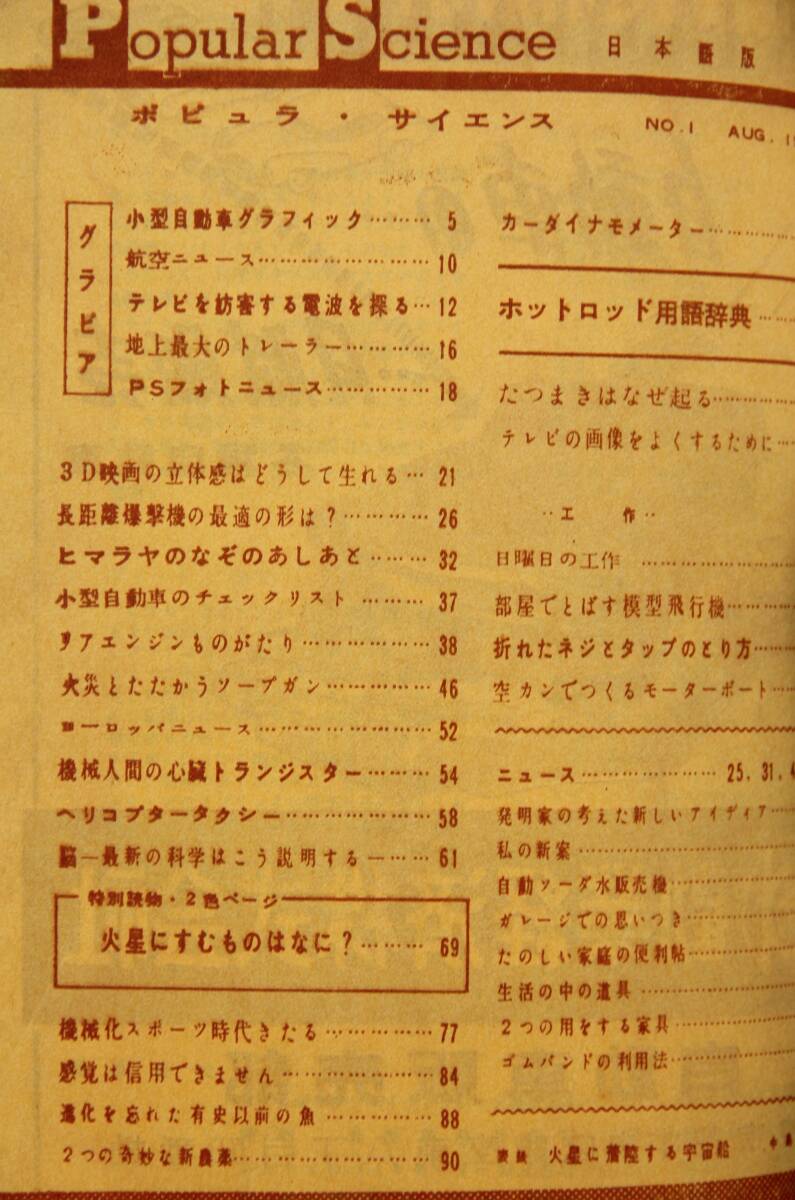 Popular Science 日本語版
ポピュラ・サイエンス NO.1 AUG.
グラビア
小型自動車グラフィック……… 5
航空ニュース…………………… 10
テレビを妨害する電波を探る… 12
地上最大のトレーラー………… 16
PSフォトニュース…………… 18
3D映画の立体感はどうして生れる… 21
長距離爆撃機の最適の形は?………… 26
ヒマラヤのなぞのあしあと……… 32
小型自動車のチェックリスト ……… 37
リアエンジンものがたり……………… 38
火災とたたかうソープガン…………… 46
ヨーロッパニュース…………………… 52
機械人間の心臓トランジスター……… 54
ヘリコプタータクシー………………… 58
脳―最新の科学はこう説明する―…… 61
特別読物・2色ページ
火星にすむものはなに?……… 69
機械化スポーツ時代きたる…………… 77
感覚は信用できません………………… 84
進化を忘れた有史以前の魚…………… 88
2つの奇妙な新農薬…………………… 90
カーダイナモメーター…………
ホットロッド用語辞典……
たつまきはなぜ起る…………
テレビの画像をよくするために…
‥工 作‥
日曜日の工作 ………………
部屋でとばす模型飛行機………
折れたネジとタップのとり方……
空カンでつくるモーターボート…
ニュース……………… 25. 31.
発明家の考えた新しいアイディア…
私の新案……………………
自動ソーダ水販売機…………
ガレージでの思いつき…………
たのしい家庭の便利帖…………
生活の中の道具……………
2つの用をする家具…………
ゴムバンドの利用法…………
表紙 火星に着陸する宇宙船